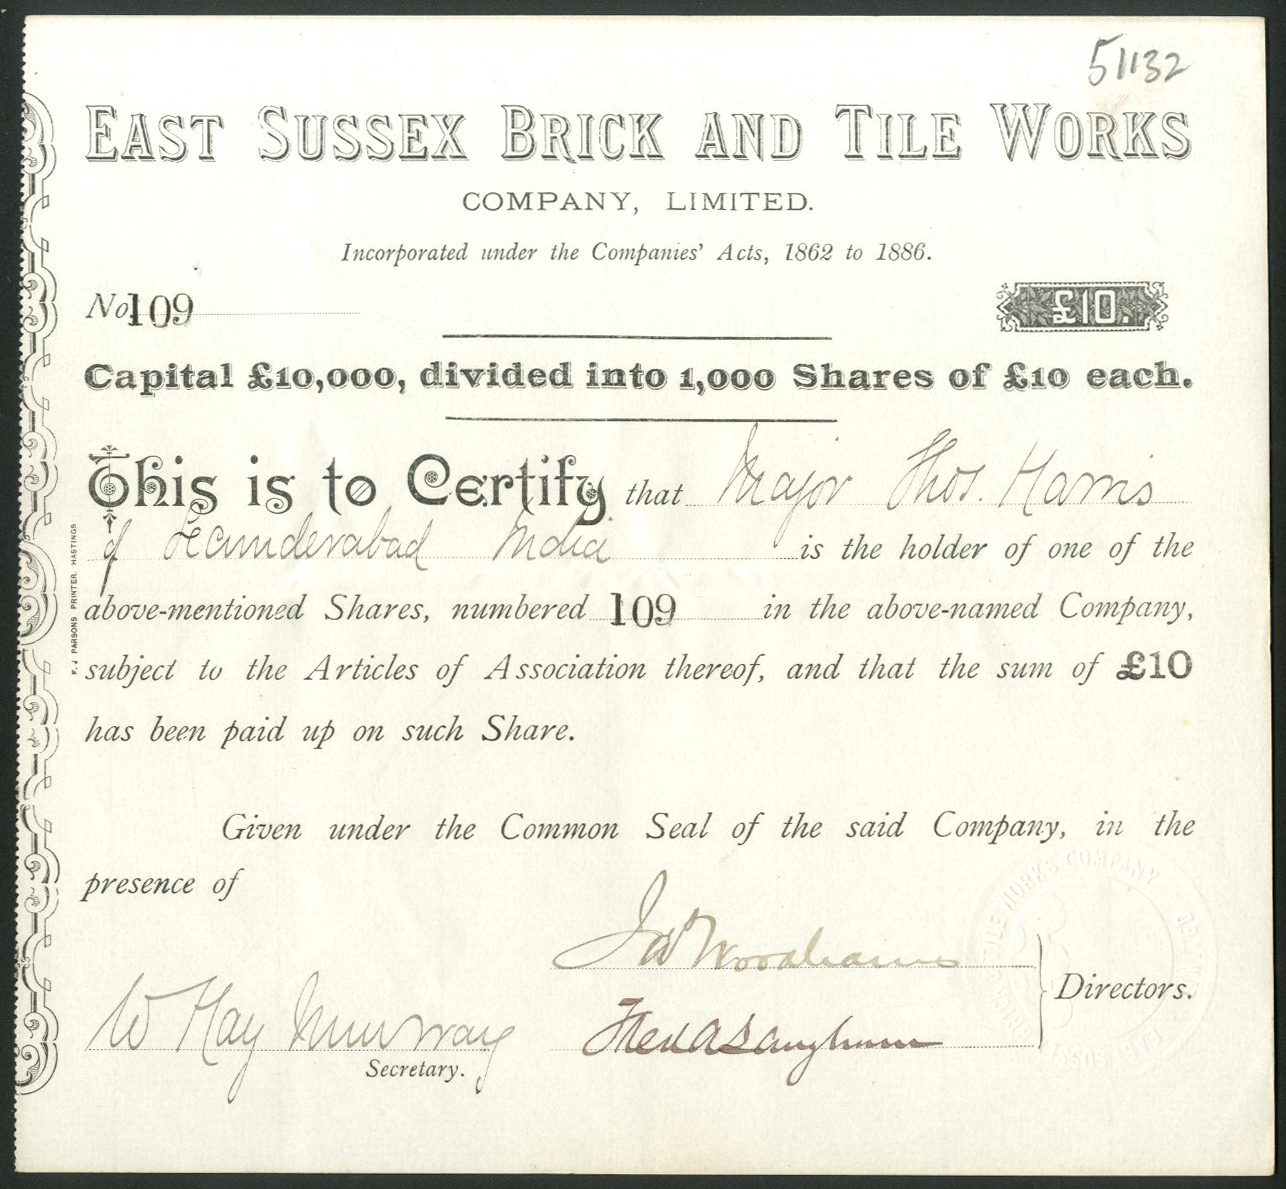 51132
EAST SUSSEX BRICK AND TILE WORKS
COMPANY, LIMITED.
Incorporated under the Companies' Acts, 1862 to 1886.
No 109
£10.
Capital £10,000, divided into 1,000 Shares of £10 each.
This is to Certify that Major Thos. Harris
of Secunderabad India is the holder of one of the
above-mentioned Shares, numbered 109 in the above-named Company,
subject to the Articles of Association thereof, and that the sum of £10
has been paid up on such Share.
Given under the Common Seal of the said Company, in the
presence of
Directors.
W Hay Murray
Secretary.
PARSONS PRINTER, HASTINGS